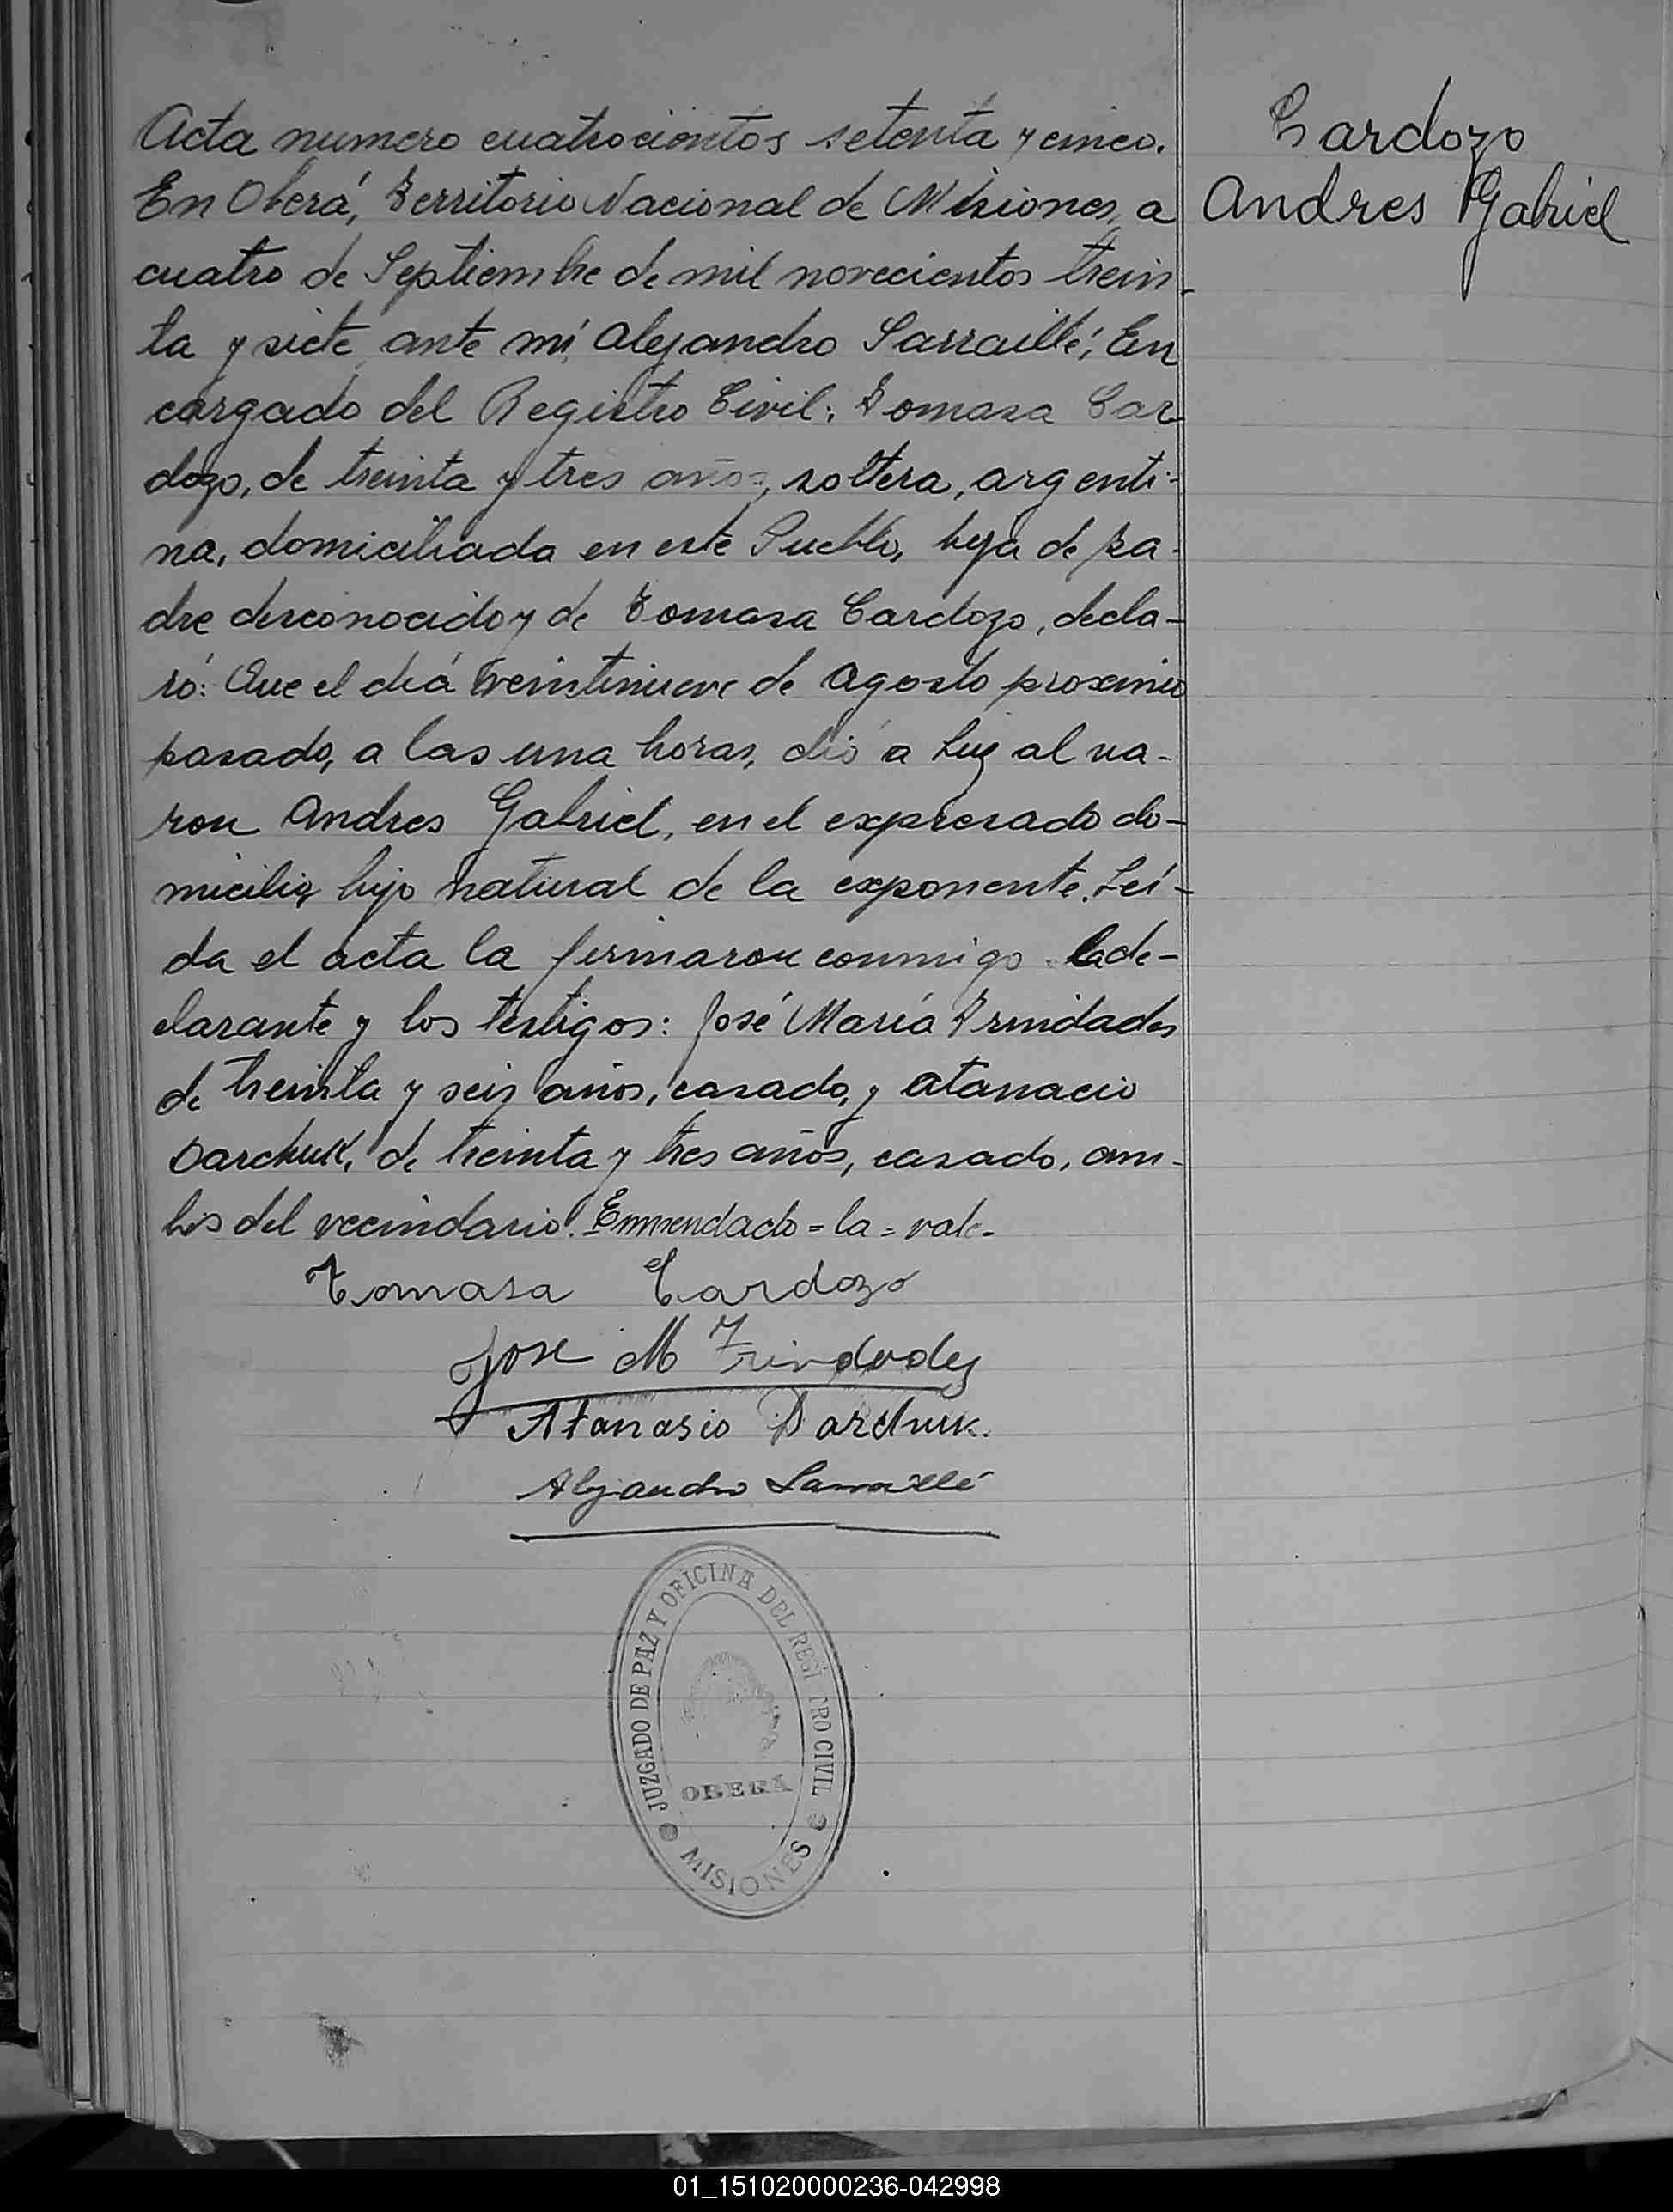 Acta numero cuatrocientos setenta y cinco.
En Oberá, Territorio Nacional de Misiones, a
cuatro de Septiembre de mil novecientos trein-
ta y siete, ante mí Alejandro Sarraillé, En
cargado del Registro Civil: Tomasa Car
dozo, de treinta y tres años, soltera, argenti-
na, domiciliada en este Pueblo, hija de pa-
dre desconocido y de Tomasa Cardozo, decla-
ró: Que el día veintinueve de Agosto proximo
pasado, a las una horas, dió a luz al va-
ron Andres Gabriel, en el expresado do-
micilio, hijo natural de la exponente. Leí-
da el acta la firmaron conmigo la de-
clarante y los testigos: José María Trindades
de treinta y seis años, casado, y Atanacio
Darchuk, de treinta y tres años, casado, am-
bos del vecindario. Enmendado=la=vale-
Tomasa Cardozo
Jose M Trindades
Atanasio Darchuk.
Alejandro Sarraillé
Cardozo
Andres Gabriel
JUZGADO DE PAZ Y OFICINA DEL REGISTRO CIVIL
OBERÁ
MISIONES
01_151020000236-042998